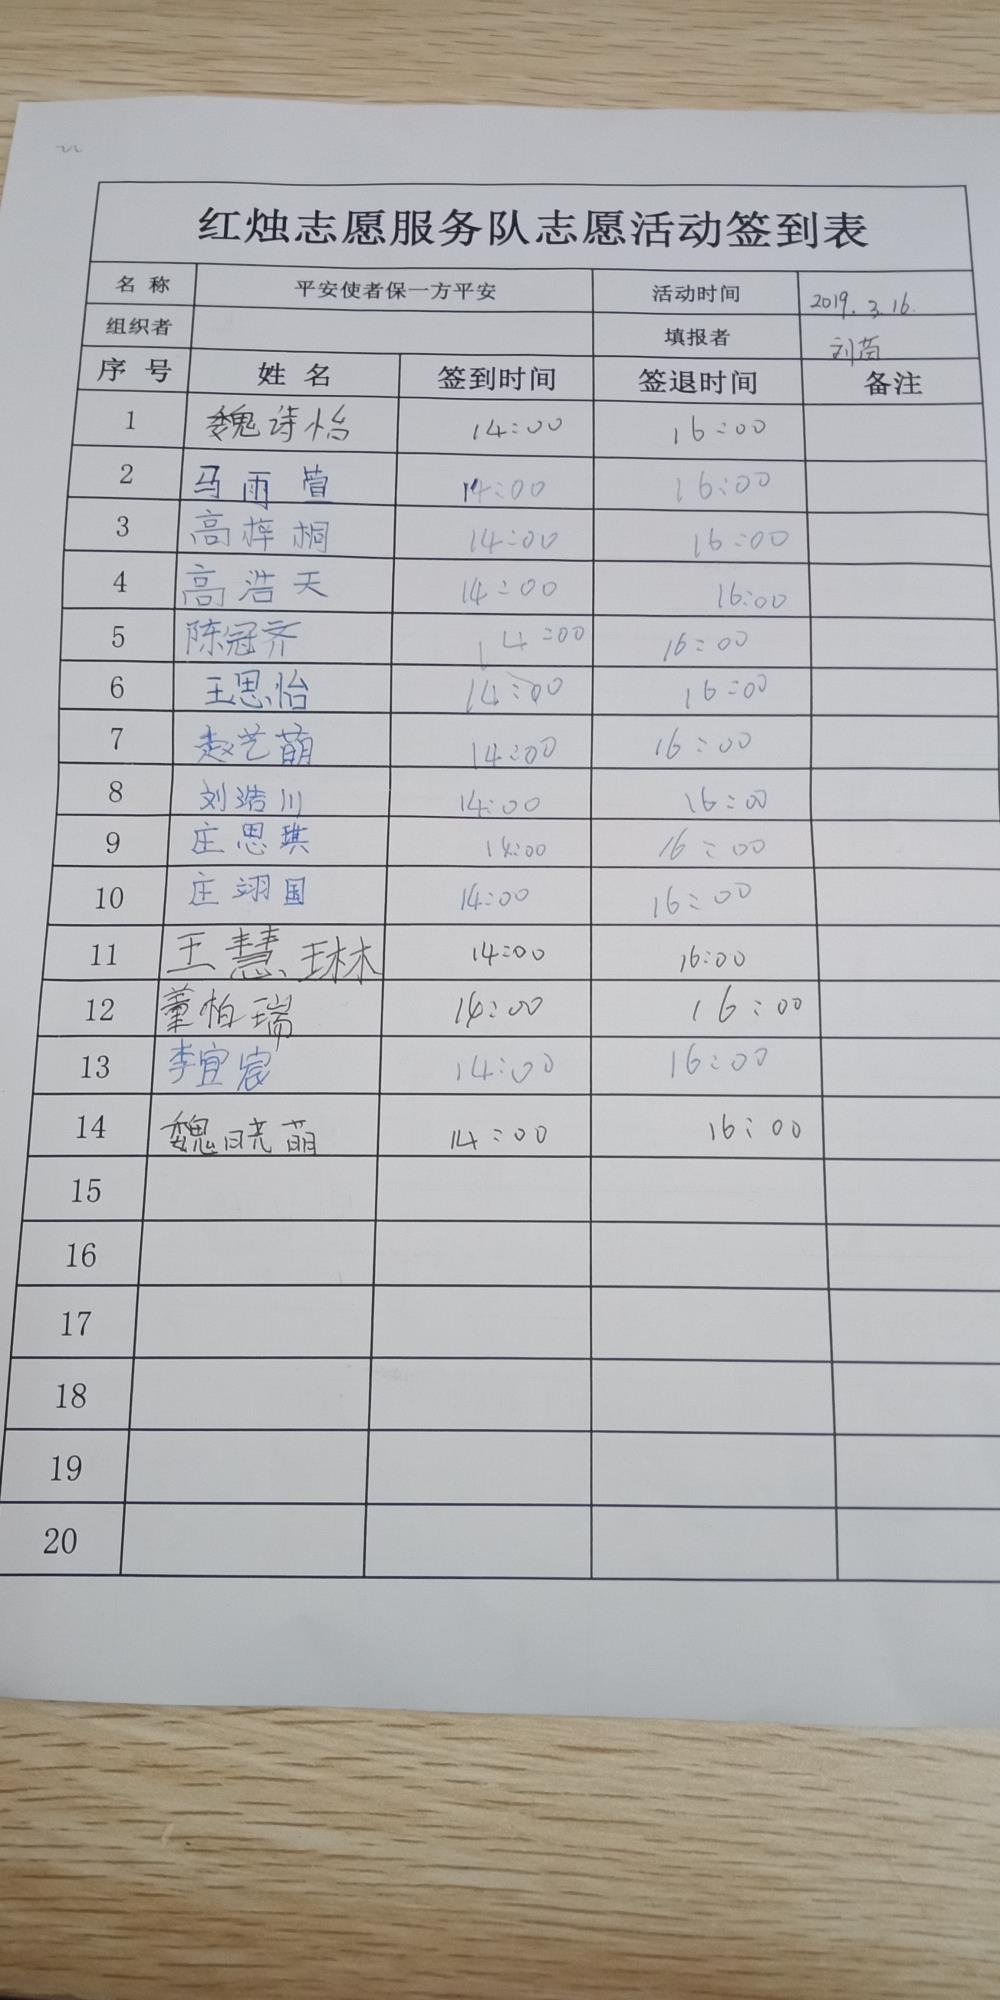 红烛志愿服务队志愿活动签到表
名 称 平安使者保一方平安 活动时间 2019.3.16.
组织者 填报者 刘茵
序 号 姓 名 签到时间 签退时间 备注
1 魏诗怡 14:00 16:00
2 马雨萱 14:00 16:00
3 高梓桐 14:00 16:00
4 高浩天 14:00 16:00
5 陈冠齐 14:00 16:00
6 王思怡 14:00 16:00
7 赵艺萌 14:00 16:00
8 刘浩川 14:00 16:00
9 庄思琪 14:00 16:00
10 庄翊国 14:00 16:00
11 王慧琳 14:00 16:00
12 董柏瑞 14:00 16:00
13 李宜宸 14:00 16:00
14 魏晓萌 14:00 16:00
15
16
17
18
19
20